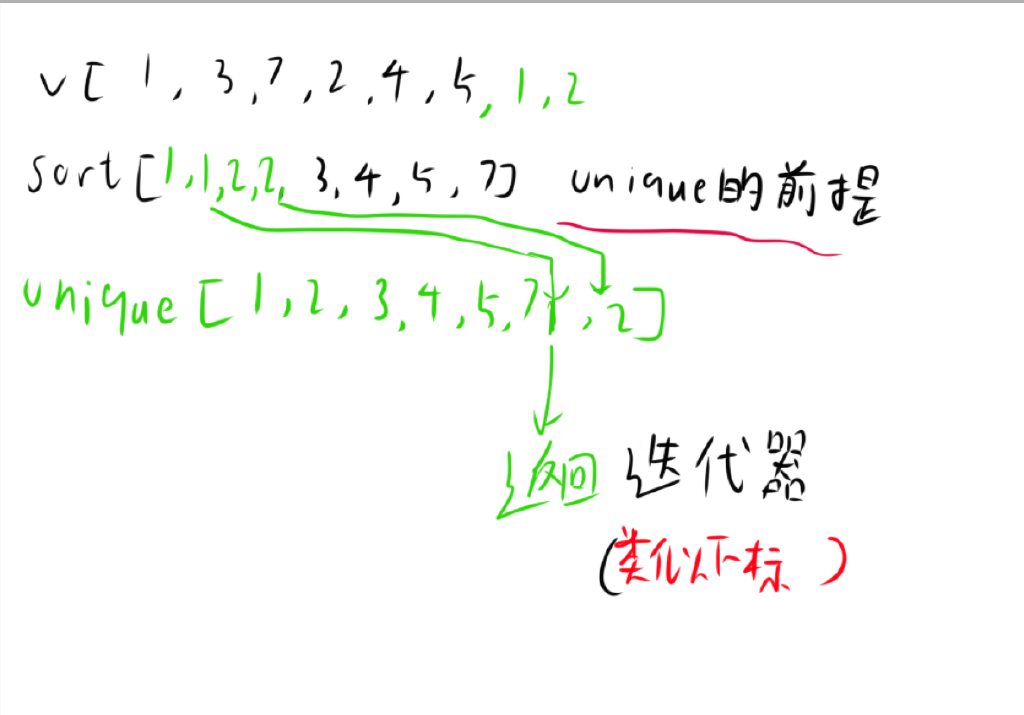 v[ 1, 3, 7, 2, 4, 5, 1, 2
sort[1,1,2,2, 3, 4, 5, 7] unique的前提
unique[1, 2, 3, 4, 5, 7, , 2]
返回 迭代器
(类似下标)